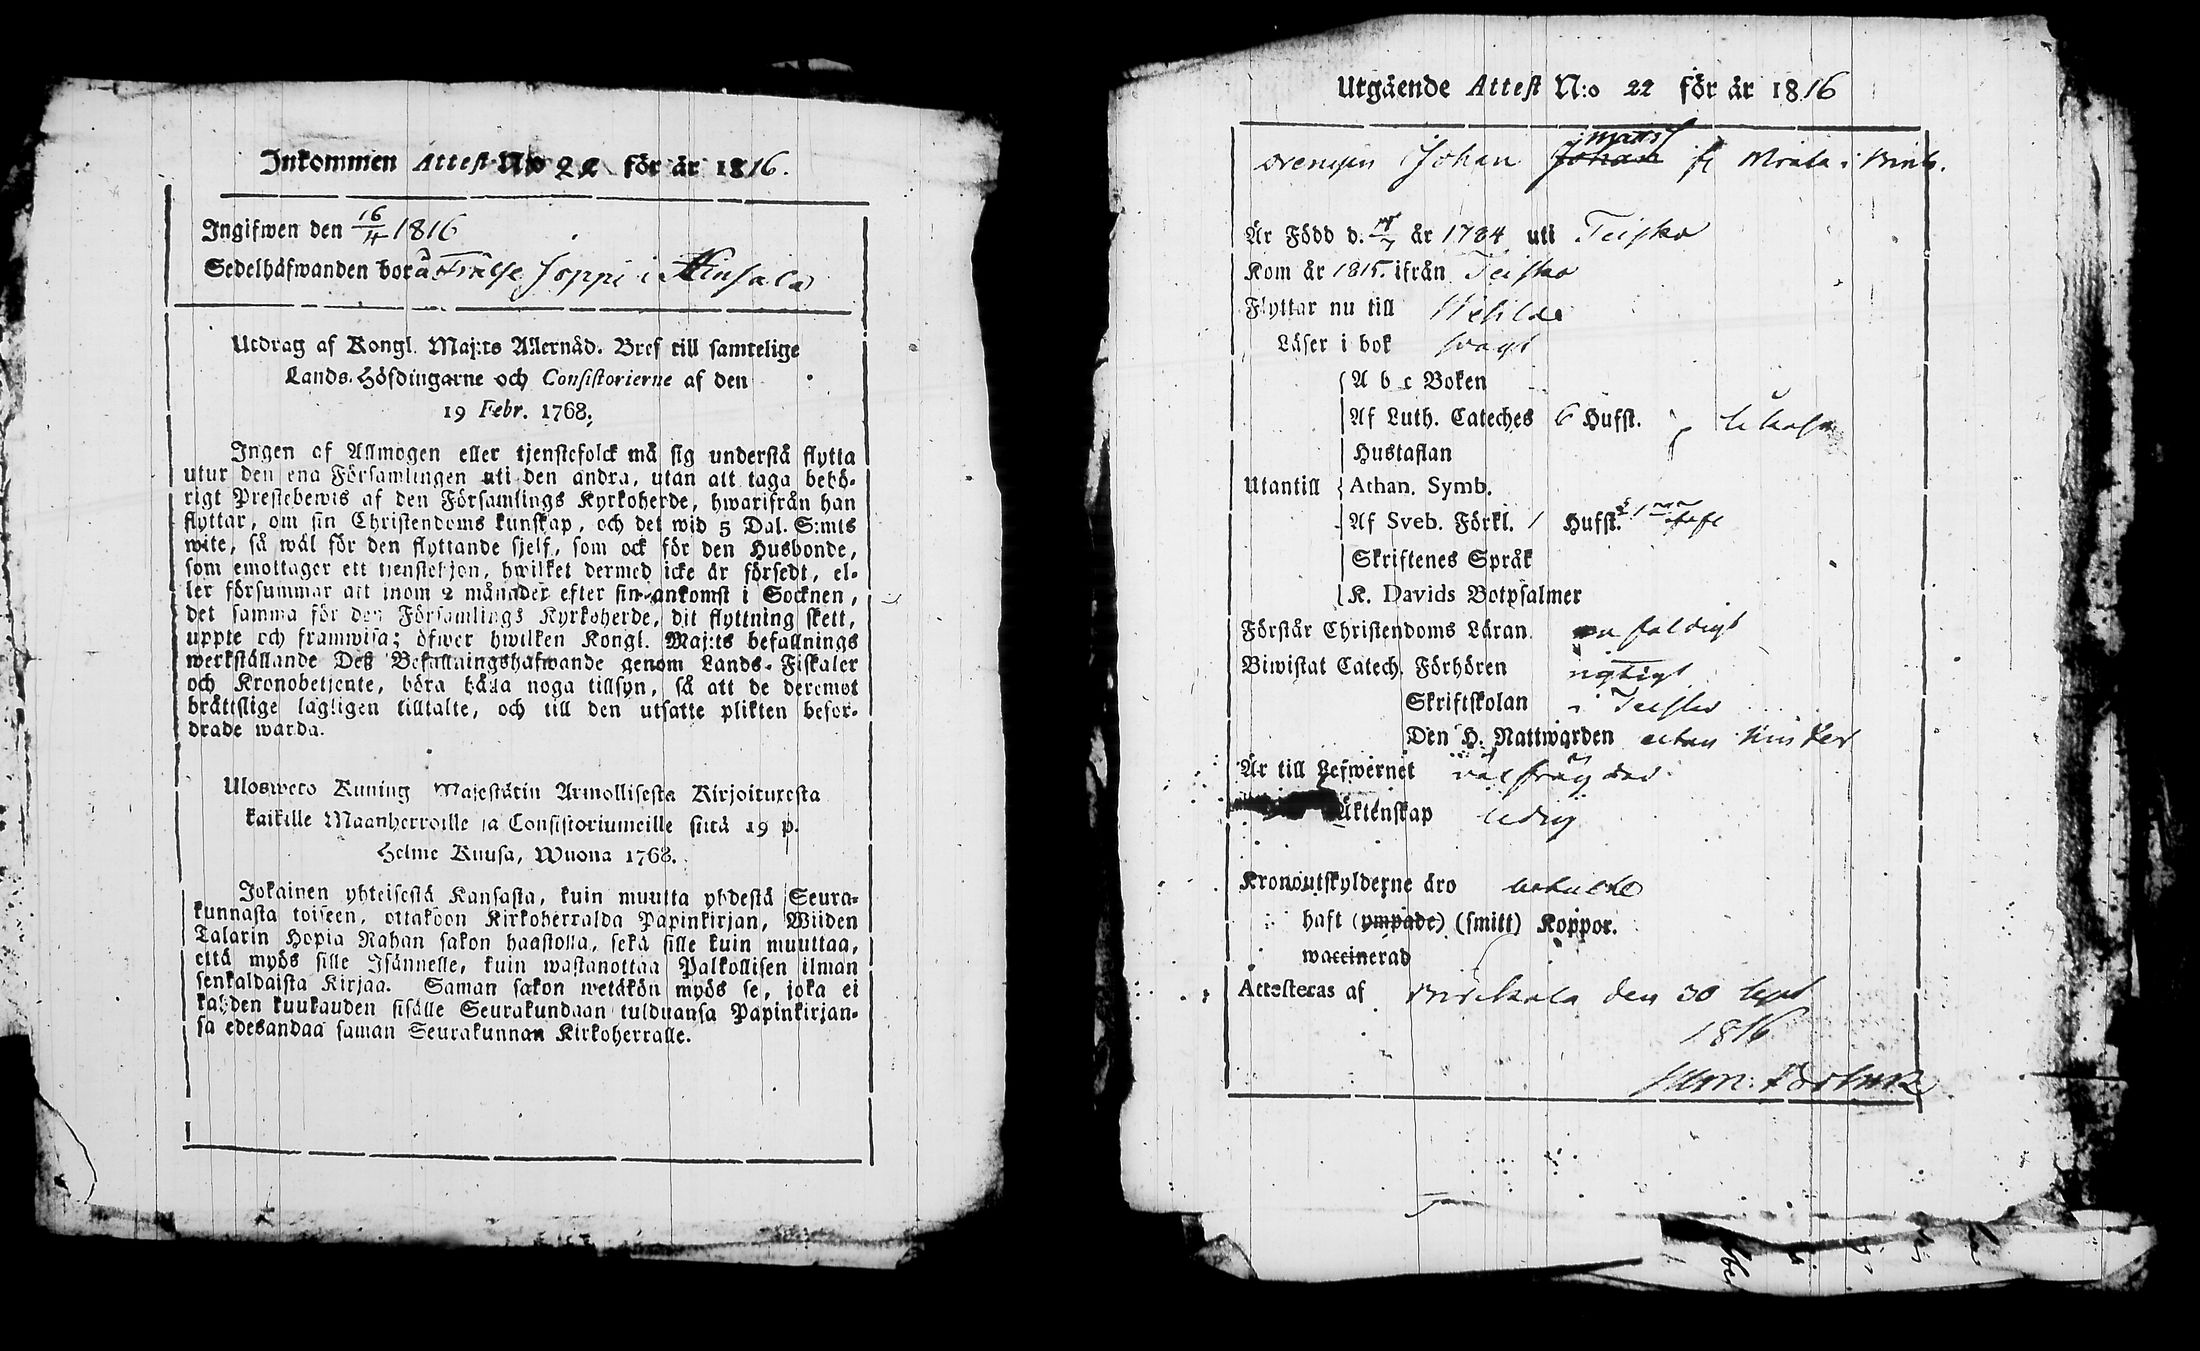 Inkommen Attest No 22 för år 1816.
Ingifwen den 16/4 1816
Sedelhäfwanden bor å Frälse Joppi i
Utdrag af Kongl. Maj:ts Allernåd. Bref till samtelige
Lands-Höfdingarne och Consistorierne af den
19 Febr. 1768.
Ingen af Allmogen eller tjenstefolck må sig understå flytta
utur den ena Församlingen uti den andra, utan att taga behö-
rigt Prestebewis af den Församlings Kyrkoherde, hwarifrån han
flyttar, om sin Christendoms kunskap, och det wid 5 Dal. S:mts
wite, så wäl för den flyttande sjelf, som ock för den Husbonde,
som emottager ett tjenstehjon, hwilket dermed icke är försedt, el-
ler försummar att inom 2 månader efter sin ankomst i Socknen,
det samma för den Församlings Kyrkoherde, dit flyttning skett,
uppte och framwisa; öfwer hwilken Kongl. Maj:ts befallnings
werkställande Deß Befallningshafwande genom Lands-Fiskaler
och Kronobetjente, böra hålla noga tillsyn, så att de deremot
bråttslige lagligen tilltalte, och till den utsatte plikten befor-
drade warda.
Ulosweto Kuning Majestätin Armollisesta Kirjoituxesta
kaikille Maanherroille ja Consistoriumeille siitä 19 p.
Helme Kuusa, Wuona 1768.
Jokainen yhteisestä Kansasta, kuin muutta yhdestä Seura-
kunnasta toiseen, ottakoon Kirkoherralda Papinkirjan, Wiiden
Talarin Hopia Rahan sakon haastolla, sekä sille kuin muuttaa,
että myös sille Isännelle, kuin wastanottaa Palkollisen ilman
senkaldaista Kirjaa. Saman sakon wetäkön myös se, joka ei
kahden kuukauden sisälle Seurakundaan tulduansa Papinkirjan-
sa edesandaa saman Seurakunnan Kirkoherralle.
Utgående Attest N:o 22 för år 1816
Matts
Drengen Johan Johan fr
Är Född d. år 1784 uti Teisko
Kom år 1815 ifrån Teisko
Flyttar nu till
Läser i bok svagt
A b c Boken
Af Luth. Cateches 6 Hufst.
Hustaflan
Utantill Athan. Symb.
Af Sveb. Förkl. 1 Hufst.
Skriftenes Språk
K. Davids Botpsalmer
Förstår Christendoms Läran enfaldigt
Biwistat Catech. Förhören rigtigt
Skriftskolan i Teisko
Den H. Nattwarden utan hinder
Är till Lefwernet välfrägdad
Äktenskap ledig
Kronoutskylderne äro betalte
haft (ympade) (smitt) Koppor.
waccinerad
Attesteras af Birckala den 30 Sept
1816